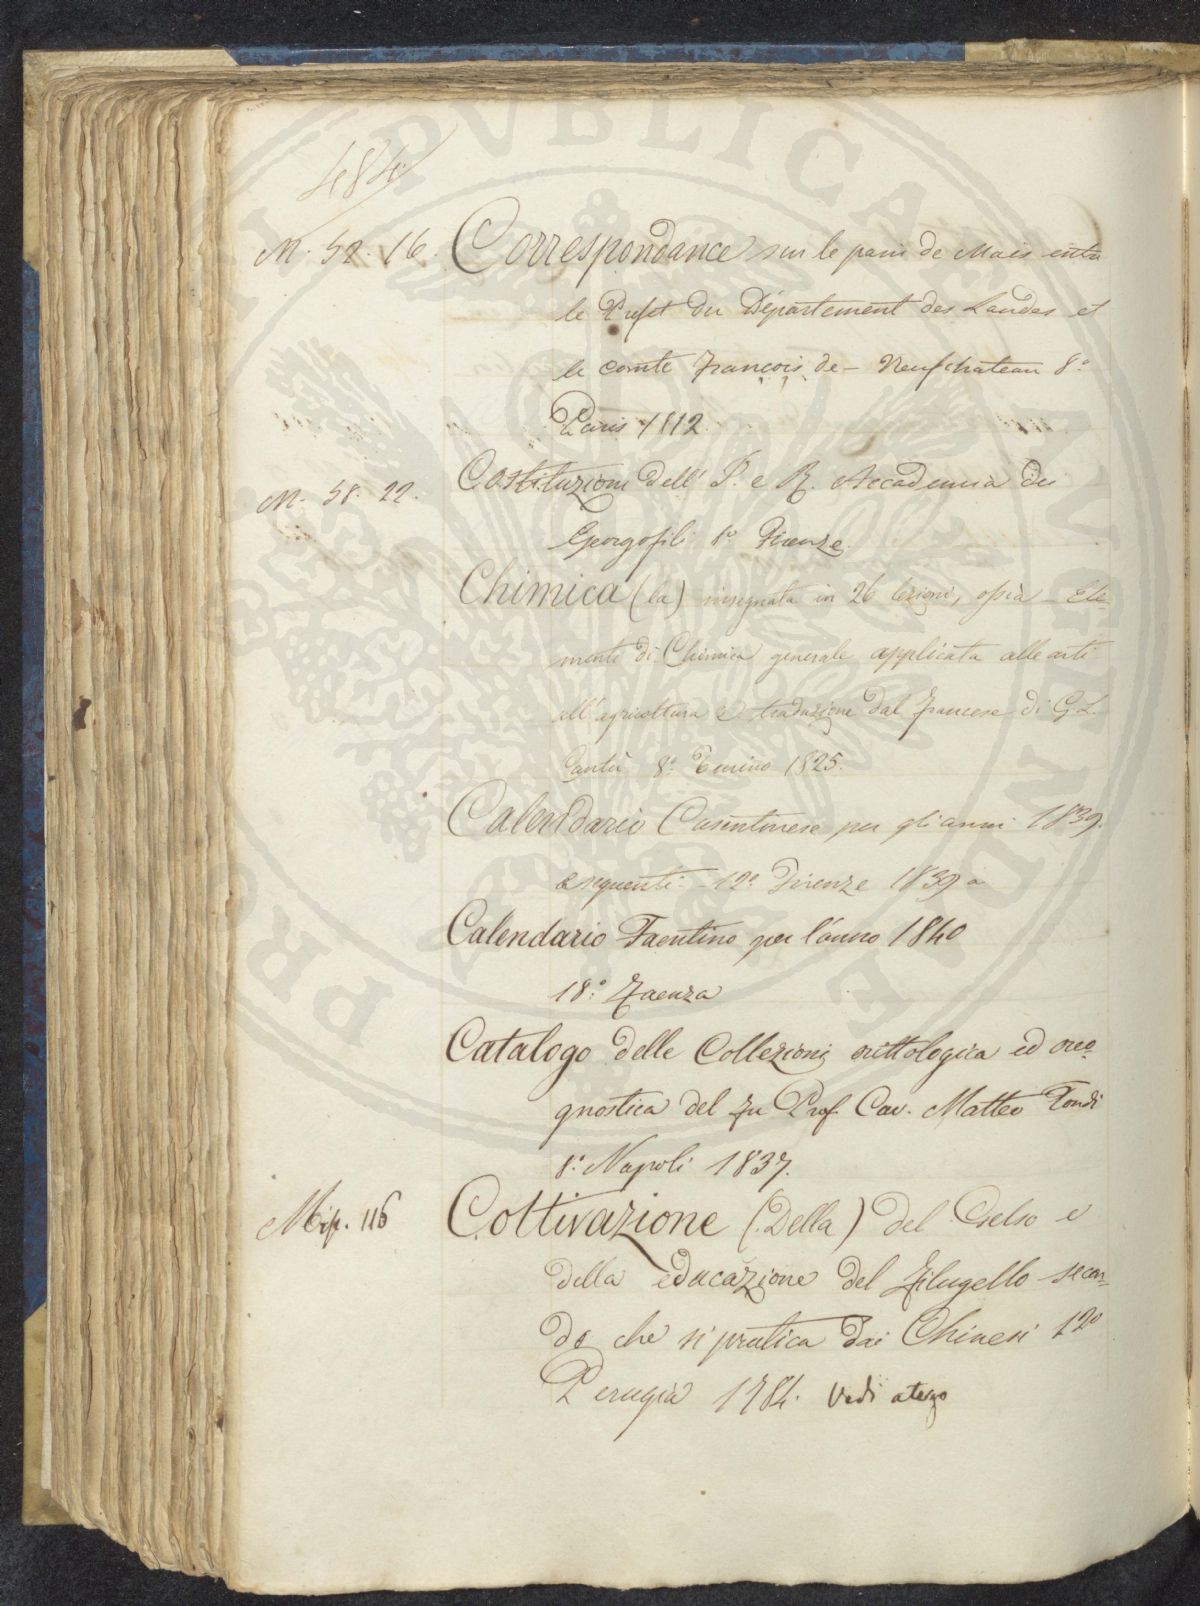 484
M. 52. 16. Correspondance sur le pain de Mais entre
le Prefet du Département des Landes et
le comte François de - Neufchateau 8.°
Paris 1812.
M. 58. 22. Costituzioni dell' I. e R. Accademia dei
Georgofili 8.° Firenze
Chimica (la) insegnata in 26 lezioni, ossia - Ele-
menti di Chimica generale applicata alle arti
all'agricoltura e traduzione dal francese di G. L.
Cantù 8.° Torino 1825.
Calendario Casentinese per gli anni 1839.
e seguenti - 12.° Firenze 1839 a
Calendario Faentino per l'anno 1840
18.° Faenza
Catalogo delle Collezioni orittologica ed oreo-
gnostica del fu Prof. Cav. Matteo Tondi
8.° Napoli 1837.
Misp. 116 Coltivazione (Della) del Gelso e
della educazione del Filugello secon-
do che si pratica dai Chinesi 12°
Perugia 1784. Vedi a tergo
PROPRIETÀ PVBLICA VNIVERSALE